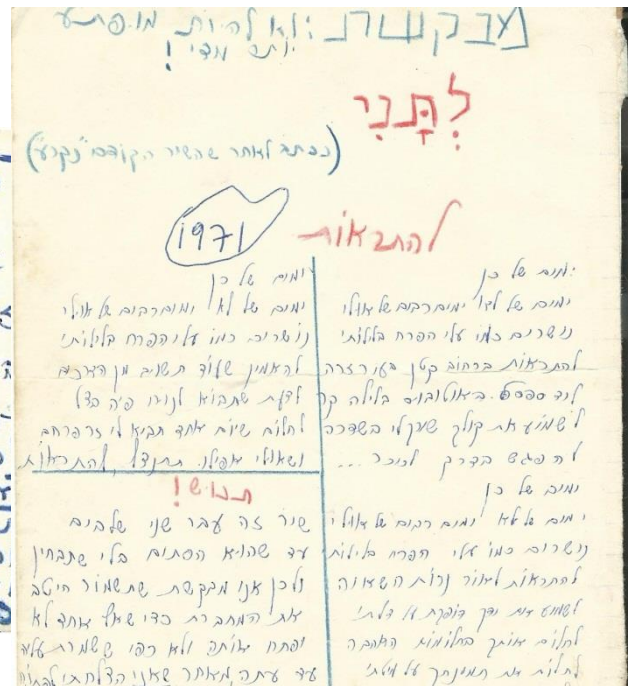 מבקשת: לא להיות מופתע
יותר מדי!
לְתָּנִי
(נכתב לאחר שהשיר הקודם "נקרע")
להתראות
1971
ימים של כן
ימים של לא ימים רבים של אולי
נושרים כמו עלי הפרח בלילותי
להתראות ברחוב קטן בעיר זרה
ליד ספסל האוטובוס בלילה קר
לשמוע את קולך שוקט לי בשדרה
להפגש בדרך לכיכר...
ימים של כן
ימים של לא ימים רבים של אולי
נושרים כמו עלי הפרח בלילות
להתראות לאור נרות השעווה
לשמוע את ידך דופקת על דלתי
לחלום אותך בחלומות האהבה
לתלות את תמונתך על מיטתי
ימים של כן
ימים של לא ימים רבים של אולי
נושרים כמו עלי הפרח בלילותי
להאמין שעוד תשוב מן הדרכים
לדעת שתבוא לגורו פיה בדל
לחלום שיום אחד תביא לי זר פרחים
ושאולי אפילו תתנצל, להתראות
תנוש!
שיר זה עבר שני שלבים
עד שהוא הסתום בלי שתבחין
ולכן אני מבקשת שתשמור היטב
את המחברת כדי שאף אחד לא
יפתח אותה ולא כפי ששמרת עליה
עד עתה, מאחר שאני הצלחתי לפתוח